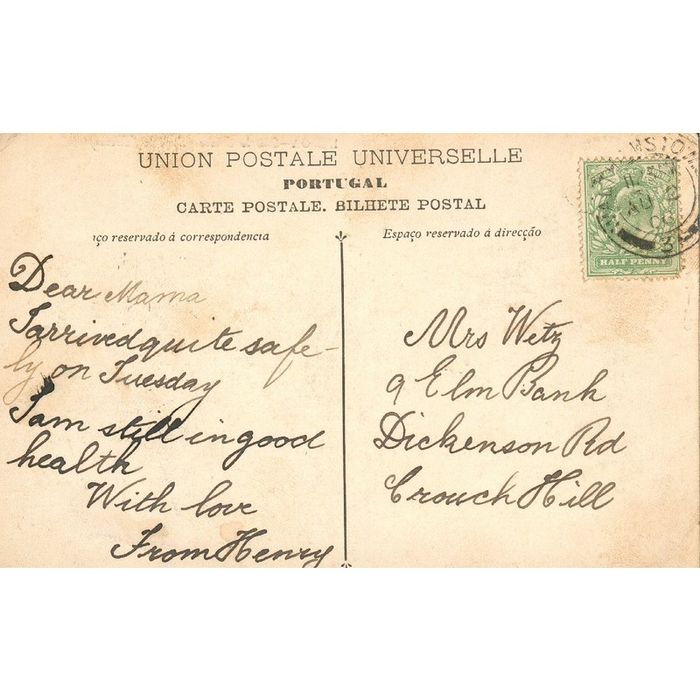 UNION POSTALE UNIVERSELLE
PORTUGAL
CARTE POSTALE. BILHETE POSTAL
ço reservado á correspondencia
Espaço reservado á direcção
HALF PENNY
Dear Mama
I arrived quite safe-
ly on Tuesday
I am still in good
health
With love
From Henry
Mrs Wetz
9 Elm Bank
Dickenson Rd
Crouch Hill